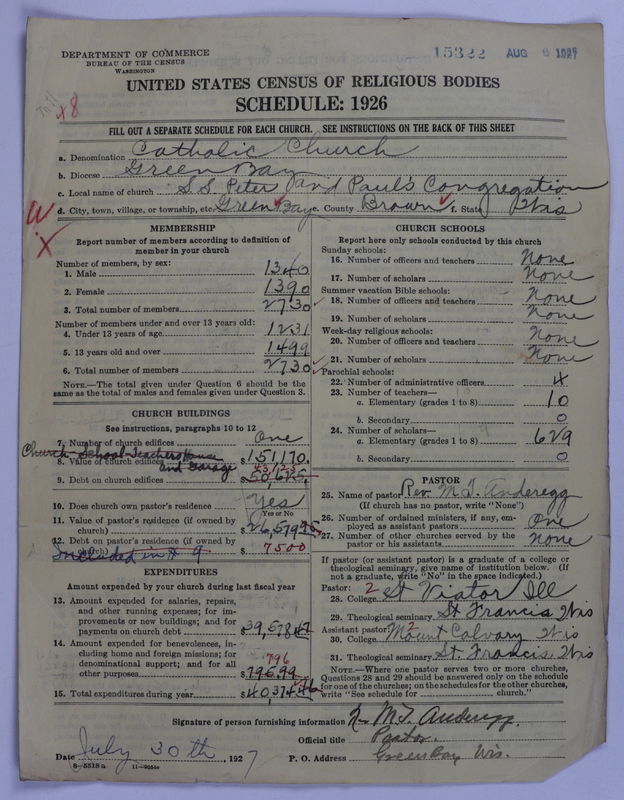 DEPARTMENT OF COMMERCE
BUREAU OF THE CENSUS
WASHINGTON
15322 AUG 6 1927
UNITED STATES CENSUS OF RELIGIOUS BODIES
SCHEDULE: 1926
x8
FILL OUT A SEPARATE SCHEDULE FOR EACH CHURCH. SEE INSTRUCTIONS ON THE BACK OF THIS SHEET
a. Denomination Catholic Church
b. Diocese Green Bay
c. Local name of church S.S. Peter and Paul's Congregation
d. City, town, village, or township, etc. Green Bay e. County Brown f. State Wis
W
X
MEMBERSHIP
Report number of members according to definition of
member in your church
Number of members, by sex:
1. Male 1340
2. Female 1390
3. Total number of members 2730
Number of members under and over 13 years old:
4. Under 13 years of age 1231
5. 13 years old and over 1499
6. Total number of members 2730
NOTE.—The total given under Question 6 should be the
same as the total of males and females given under Question 3.
CHURCH BUILDINGS
See instructions, paragraphs 10 to 12
7. Number of church edifices One
Church - School - Teachers House
and Garage
8. Value of church edifices $151,170.
43125
9. Debt on church edifices $50625.
10. Does church own pastor's residence Yes
Yes or No
11. Value of pastor's residence (if owned by
church) $26,579.95
12. Debt on pastor's residence (if owned by
church) $7500
Included in # 9
EXPENDITURES
Amount expended by your church during last fiscal year
13. Amount expended for salaries, repairs,
and other running expenses; for im-
provements or new buildings; and for
payments on church debt $39,578.47
14. Amount expended for benevolences, in-
cluding home and foreign missions; for
denominational support; and for all
other purposes $795.99
796
15. Total expenditures during year $40,374.46
CHURCH SCHOOLS
Report here only schools conducted by this church
Sunday schools:
16. Number of officers and teachers None
17. Number of scholars None
Summer vacation Bible schools:
18. Number of officers and teachers None
19. Number of scholars None
Week-day religious schools:
20. Number of officers and teachers None
21. Number of scholars None
Parochial schools:
22. Number of administrative officers X
23. Number of teachers—
a. Elementary (grades 1 to 8) 10
b. Secondary 0
24. Number of scholars—
a. Elementary (grades 1 to 8) 629
b. Secondary 0
PASTOR
25. Name of pastor Rev. M. J. Anderegg
(If church has no pastor, write "None")
26. Number of ordained ministers, if any, em-
ployed as assistant pastors One
27. Number of other churches served by the
pastor or his assistants None
If pastor (or assistant pastor) is a graduate of a college or
theological seminary, give name of institution below. (If
not a graduate, write "No" in the space indicated.)
Pastor: 2
28. College St Viator Ill
29. Theological seminary St Francis Wis
Assistant pastor: 2
30. College Mount Calvary Wis
31. Theological seminary St. Francis Wis
NOTE.—Where one pastor serves two or more churches,
Questions 28 and 29 should be answered only on the schedule
for one of the churches; on the schedules for the other churches,
write "See schedule for church."
Signature of person furnishing information Rev M. J. Anderegg
Official title Pastor
Date July 30th, 1927 P. O. Address Green Bay Wis.
8-5518a 11-9054a